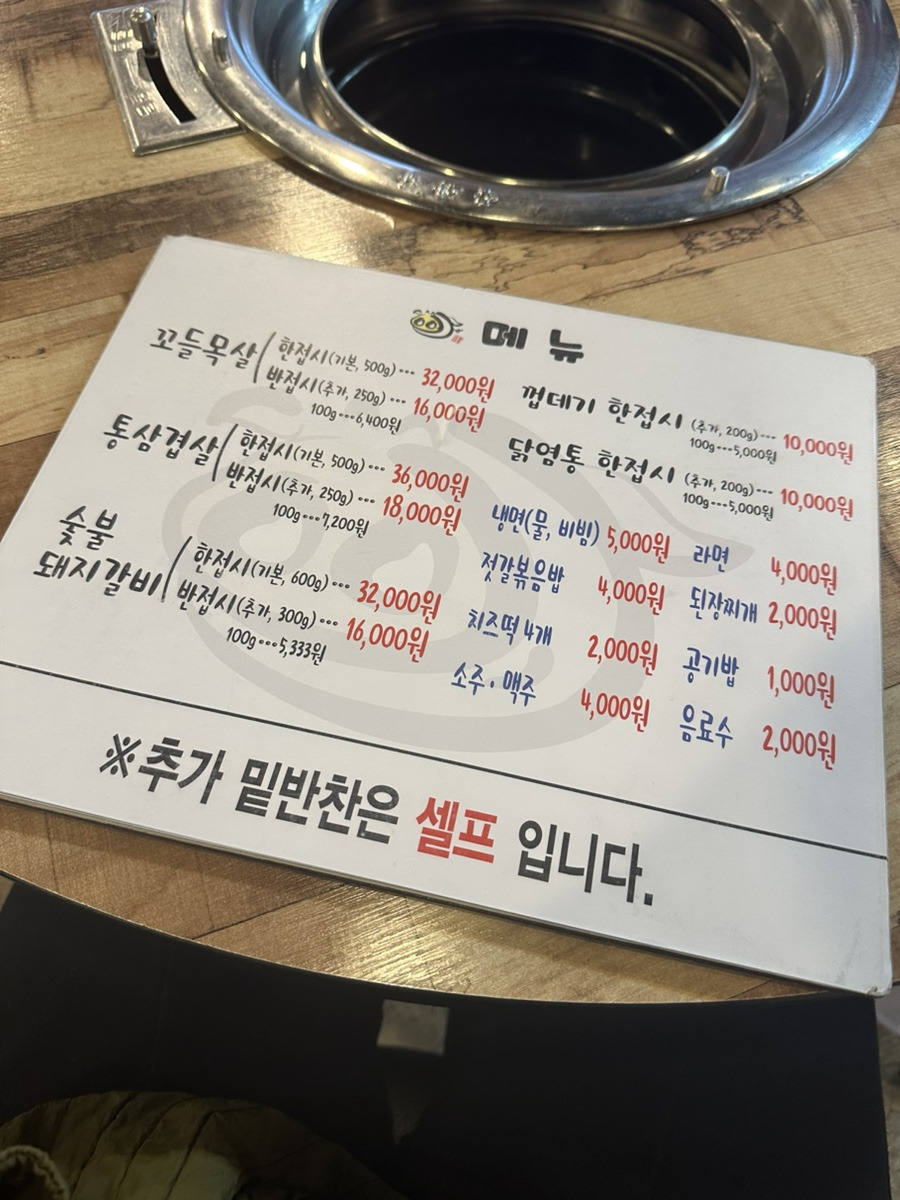 메뉴
꼬들목살 한접시(기본, 500g)··· 32,000원
반접시(추가, 250g)··· 16,000원
100g···6,400원
통삼겹살 한접시(기본, 500g)··· 36,000원
반접시(추가, 250g)··· 18,000원
100g···7,200원
숯불
돼지갈비 한접시(기본, 600g)··· 32,000원
반접시(추가, 300g)··· 16,000원
100g···5,333원
껍데기 한접시 (추가, 200g)··· 10,000원
100g···5,000원
닭염통 한접시 (추가, 200g)··· 10,000원
100g···5,000원
냉면(물, 비빔) 5,000원 라면 4,000원
젓갈볶음밥 4,000원 된장찌개 2,000원
치즈떡 4개 2,000원 공기밥 1,000원
소주·맥주 4,000원 음료수 2,000원
※추가 밑반찬은 셀프 입니다.